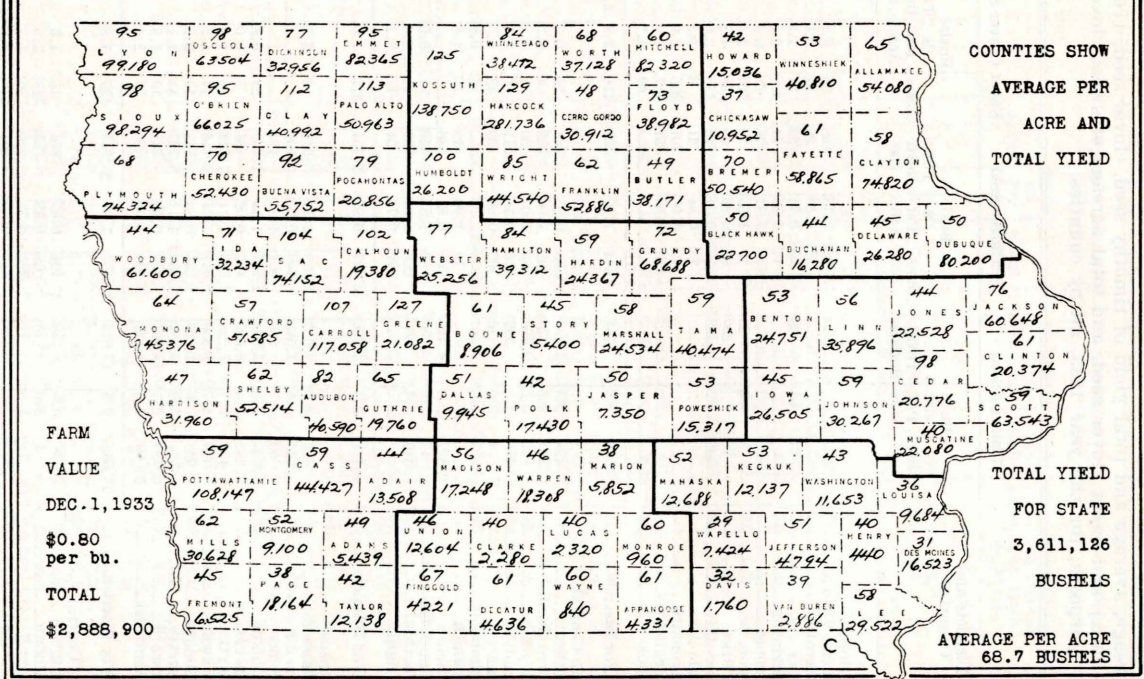 COUNTIES SHOW
AVERAGE PER
ACRE AND
TOTAL YIELD
95
LYON
99.180
98
OSCEOLA
63504
77
DICKINSON
32.956
95
EMMET
82365
125
KOSSUTH
138.750
84
WINNEBAGO
38.472
68
WORTH
37.128
60
MITCHELL
82.320
42
HOWARD
15,036
53
WINNESHIEK
40.810
65
ALLAMAKEE
54.080
98
SIOUX
98.294
95
O'BRIEN
66.025
112
CLAY
40.992
113
PALO ALTO
50.963
129
HANCOCK
281.736
48
CERRO GORDO
30.912
73
FLOYD
38.982
37
CHICKASAW
10.952
61
FAYETTE
58.865
58
CLAYTON
74.820
68
PLYMOUTH
74.324
70
CHEROKEE
52.430
92
BUENA VISTA
55,752
79
POCAHONTAS
20.856
100
HUMBOLDT
26.200
85
WRIGHT
44.540
62
FRANKLIN
52.886
49
BUTLER
38.171
70
BREMER
50.540
44
WOODBURY
61.600
71
IDA
32.234
104
SAC
74.152
102
CALHOUN
19.380
77
WEBSTER
25.256
84
HAMILTON
39.312
59
HARDIN
24.367
72
GRUNDY
68.688
50
BLACK HAWK
22700
44
BUCHANAN
16,280
45
DELAWARE
26.280
50
DUBUQUE
80,200
64
MONONA
45376
57
CRAWFORD
51.585
107
CARROLL
117.058
127
GREENE
21.082
61
BOONE
8.906
45
STORY
5400
58
MARSHALL
24.534
59
TAMA
40.474
53
BENTON
24.751
56
LINN
35,896
44
JONES
22.528
76
JACKSON
60.648
61
CLINTON
20.374
47
HARRISON
31.960
62
SHELBY
52.514
82
AUDUBON
40.590
65
GUTHRIE
19.760
51
DALLAS
9.945
42
POLK
17.430
50
JASPER
7.350
53
POWESHIEK
15.317
45
IOWA
26,505
59
JOHNSON
30.267
98
CEDAR
20.776
59
SCOTT
63.543
40
MUSCATINE
22.080
59
POTTAWATTAMIE
108,147
59
CASS
44.427
44
ADAIR
13.508
56
MADISON
17.248
46
WARREN
18.308
38
MARION
5.852
52
MAHASKA
12.688
53
KECKUK
12.137
43
WASHINGTON
11,653
36
LOUISA
9.684
62
MILLS
30.628
52
MONTGOMERY
9.100
49
ADAMS
5.439
46
UNION
12.604
40
CLARKE
2,280
40
LUCAS
2.320
60
MONROE
960
29
WAPELLO
7.424
51
JEFFERSON
4794
40
HENRY
440
31
DES MOINES
16,523
45
FREMONT
6.525
38
PAGE
18.164
42
TAYLOR
12.138
67
RINGGOLD
4221
61
DECATUR
4.636
60
WAYNE
840
61
APPANOOSE
4.331
32
DAVIS
1.760
39
VAN BUREN
2.886
58
LEE
29.522
C
FARM
VALUE
DEC.1,1933
$0.80
per bu.
TOTAL
$2,888,900
TOTAL YIELD
FOR STATE
3,611,126
BUSHELS
AVERAGE PER ACRE
68.7 BUSHELS